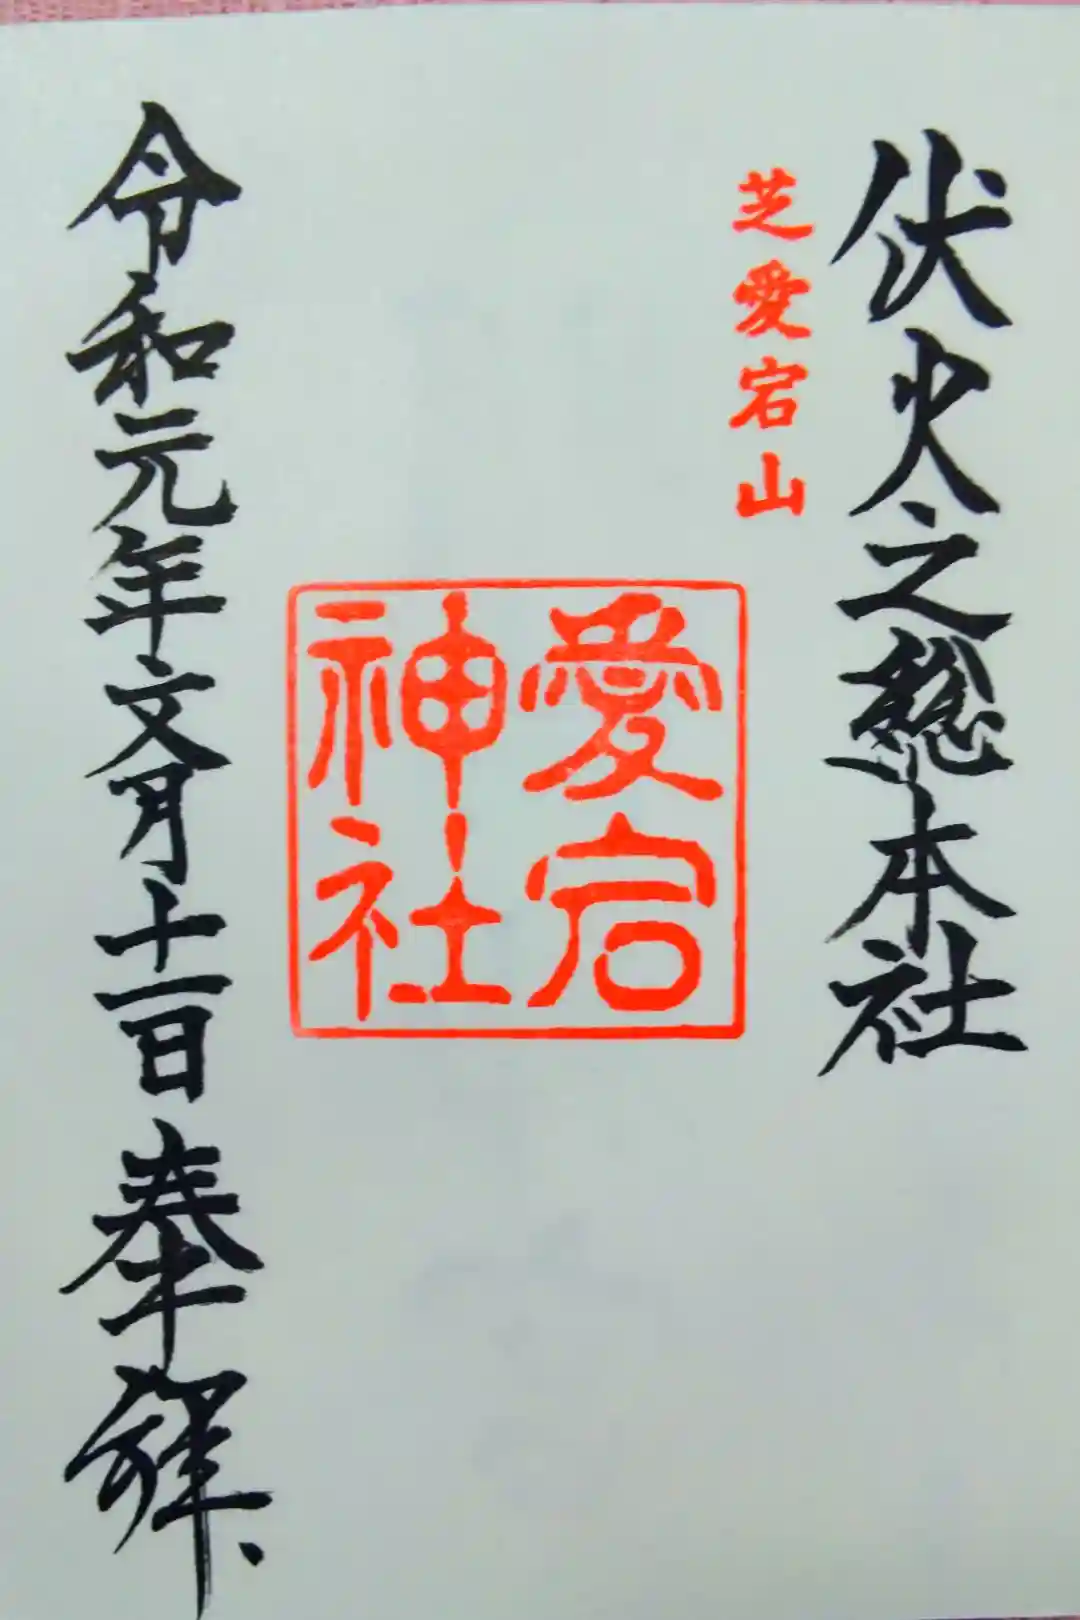 伏火之総本社
芝愛宕山
愛宕
神社
令和元年文月十一日奉拝